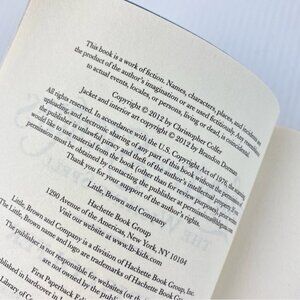 This book is a work of fiction. Names, characters, places, and incidents are
the product of the author's imagination or are used fictitiously. Any resemblance
to actual events, locales, or persons, living or dead, is coincidental.
Copyright © 2012 by Christopher Colfer
Jacket and interior art copyright © 2012 by Brandon Dorman
All rights reserved. In accordance with the U.S. Copyright Act of 1976, the scanning,
uploading, and electronic sharing of any part of this book without the permission of
the publisher is unlawful piracy and theft of the author's intellectual property. If you
would like to use material from the book (other than for review purposes), prior written
permission must be obtained by contacting the publisher at permissions@hbgusa.com.
Thank you for your support of the author's rights.
Little, Brown and Company
Hachette Book Group
1290 Avenue of the Americas, New York, NY 10104
Visit our website at www.lb-kids.com
Little, Brown and Company is a division of Hachette Book Group, Inc.
The Little, Brown name and logo are trademarks of Hachette Book Group
The publisher is not responsible for websites (or their
are not owned by the publisher.
First Paperback Edition
published in hardcover in
Library of